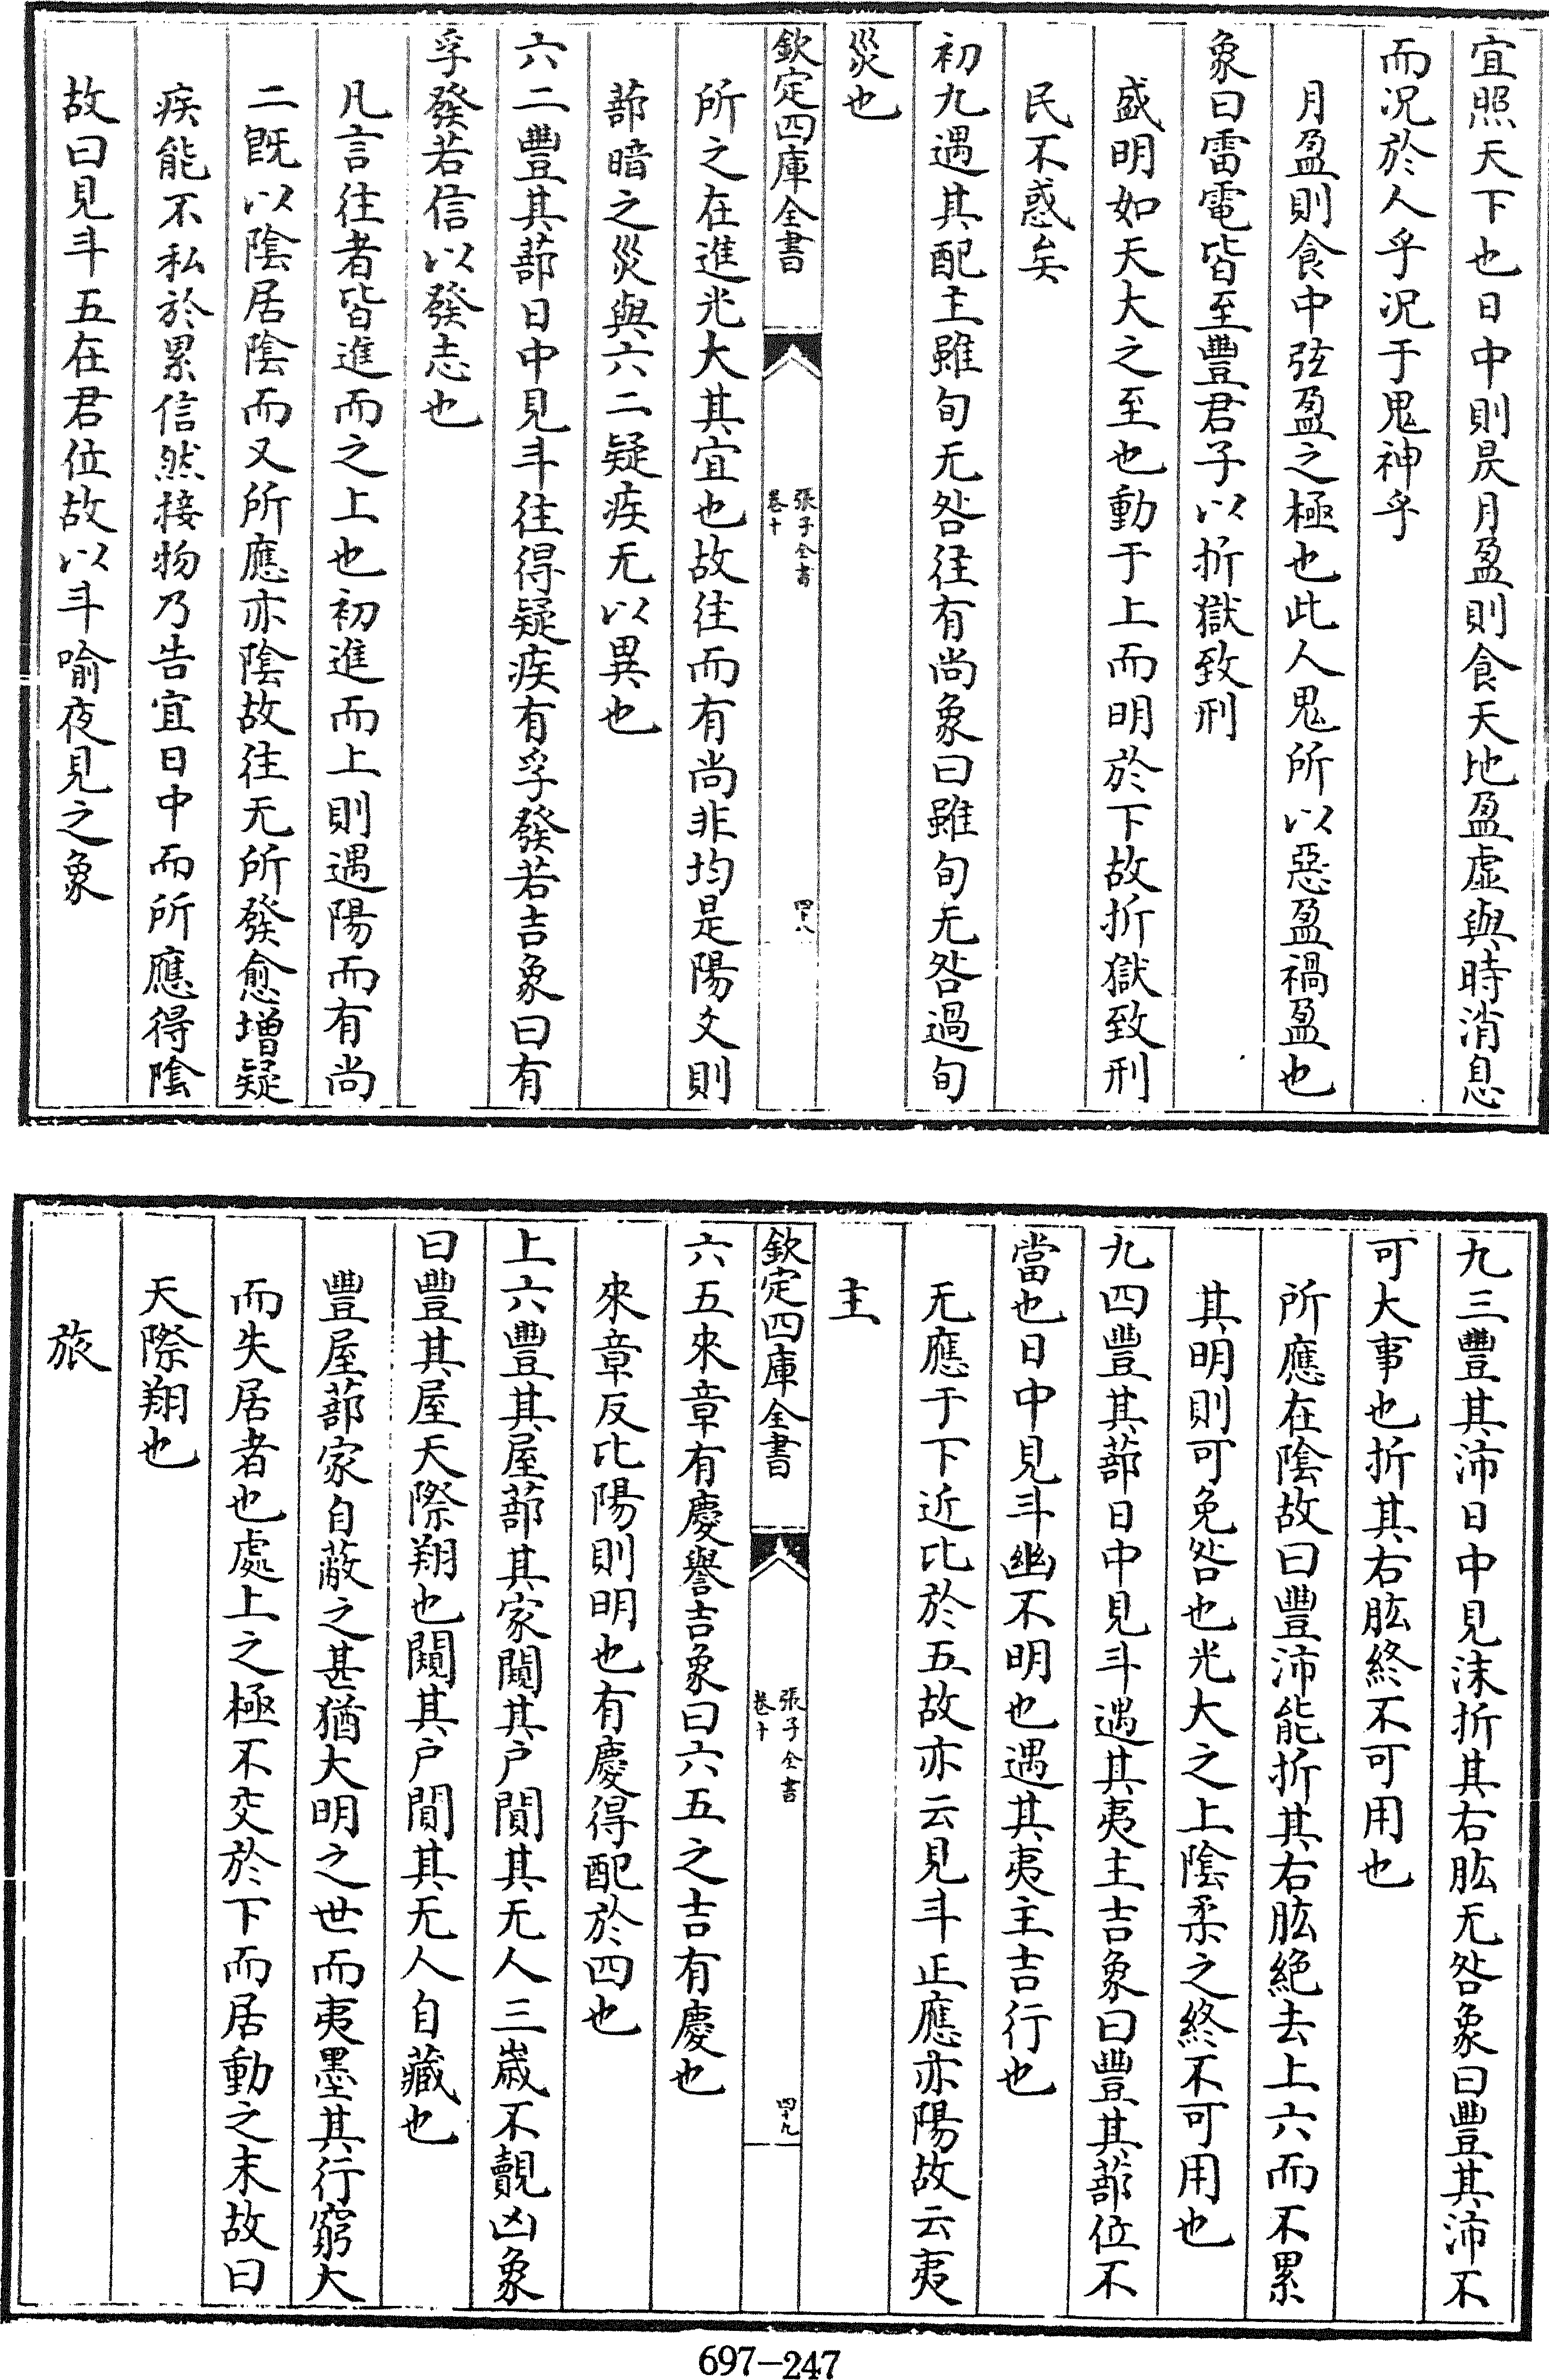 宜照天下也日中則昃月盈則食天地盈虛與時消息
而況於人乎況于鬼神乎
月盈則食中弦盈之極也此人鬼所以惡盈禍盈也
象曰雷電皆至豐君子以折獄致刑
盛明如天大之至也動于上而明於下故折獄致刑
民不惑矣
初九遇其配主雖旬无咎往有尚象曰雖旬无咎過旬
災也
欽定四庫全書
張子全書
卷十
四十八
所之在進光大其宜也故往而有尚非均是陽爻則
蔀暗之災與六二疑疾无以異也
六二豐其蔀日中見斗往得疑疾有孚發若吉象曰有
孚發若信以發志也
凡言往者皆進而之上也初進而上則遇陽而有尚
二旣以陰居陰而又所應亦陰故往无所發愈增疑
疾能不私於累信然接物乃告宜日中而所應得陰
故曰見斗五在君位故以斗喻夜見之象
九三豐其沛日中見沬折其右肱无咎象曰豐其沛不
可大事也折其右肱終不可用也
所應在陰故曰豐沛能折其右肱絶去上六而不累
其明則可免咎也光大之上陰柔之終不可用也
九四豐其蔀日中見斗遇其夷主吉象曰豐其蔀位不
當也日中見斗幽不明也遇其夷主吉行也
无應于下近比於五故亦云見斗正應亦陽故云夷
主
欽定四庫全書
張子全書
卷十
四十九
六五來章有慶譽吉象曰六五之吉有慶也
來章反比陽則明也有慶得配於四也
上六豐其屋蔀其家闚其戶闃其无人三歲不覿凶象
曰豐其屋天際翔也闚其戶闃其无人自藏也
豐屋蔀家自蔽之甚猶大明之世而夷墨其行窮大
而失居者也處上之極不交於下而居動之末故曰
天際翔也
旅
697-247